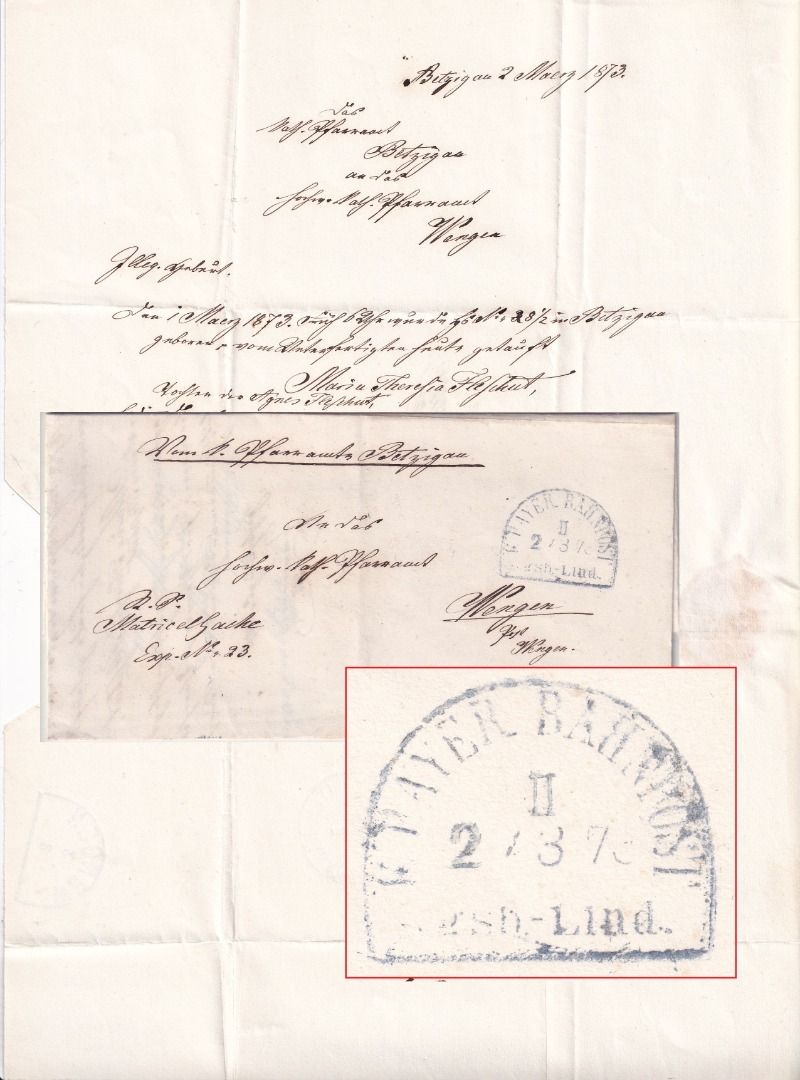 Betzigau 2 Maerz 1873.
Das
Kath. Pfarramt
Betzigau
an das
hochw. Kath. Pfarramt
Wengen
Illeg. Geburt.
Den 1 Maerz 1873. Früh 6 Uhr wurde Hs. No. 28 1/2 in Betzigau
geboren u. vom Unterfertigten heute getauft
Maria Theresia Fleschhut,
Tochter der Agnes Fleschhut,
Vom k. Pfarramte Betzigau
An das
hochw. Kath. Pfarramt
Wengen
Post
Wengen.
R. S.
Matricelsache
Exp. No. 23.
K. BAYER. BAHNPOST
II
2 /3 73
gsb.-Lind.
K. BAYER. BAHNPOST
II
2 /3 73
gsb.-Lind.